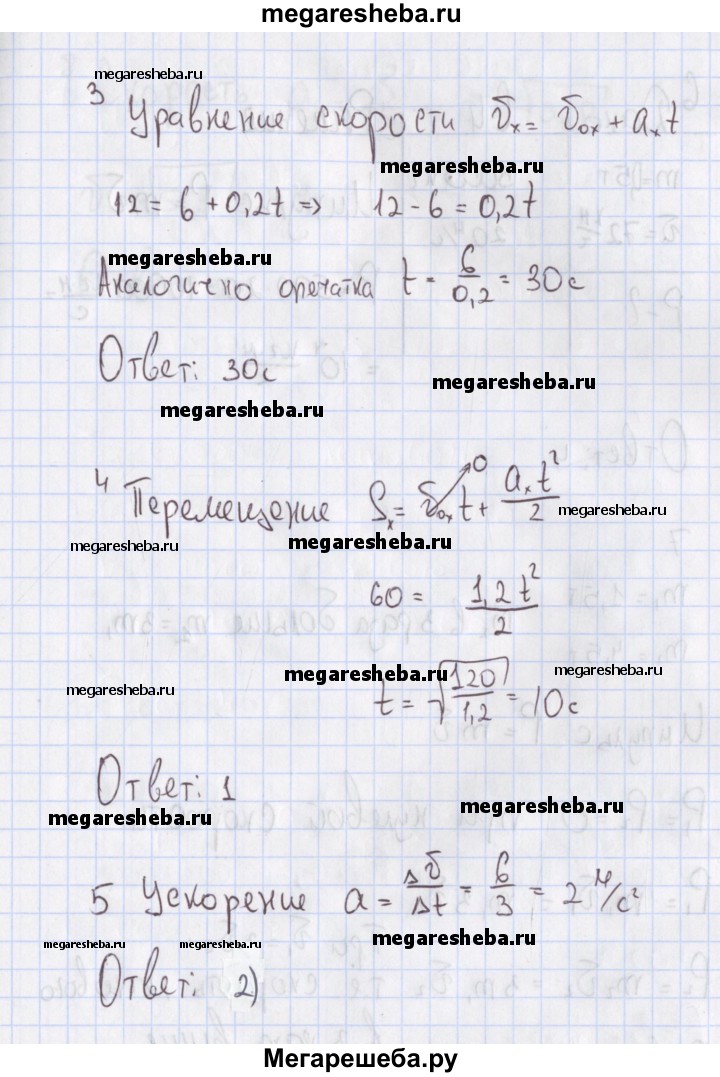 megaresheba.ru
megaresheba.ru
3 Уравнение скорости υₓ = υ₀ₓ + aₓt
megaresheba.ru
12 = 6 + 0,2t => 12 - 6 = 0,2t
megaresheba.ru
Аналогично опечатка t = 6/0,2 = 30с
Ответ: 30с
megaresheba.ru
megaresheba.ru
4 Перемещение Sₓ = υ₀ₓt + aₓt²/2
0
megaresheba.ru
megaresheba.ru
megaresheba.ru
60 = 1,2t²/2
megaresheba.ru
megaresheba.ru
megaresheba.ru
t = √120/1,2 = 10с
Ответ: 1
megaresheba.ru
megaresheba.ru
5 Ускорение a = Δυ/Δt = 6/3 = 2 м/с²
megaresheba.ru
megaresheba.ru
megaresheba.ru
Ответ: 2)
Мегарешеба.ру